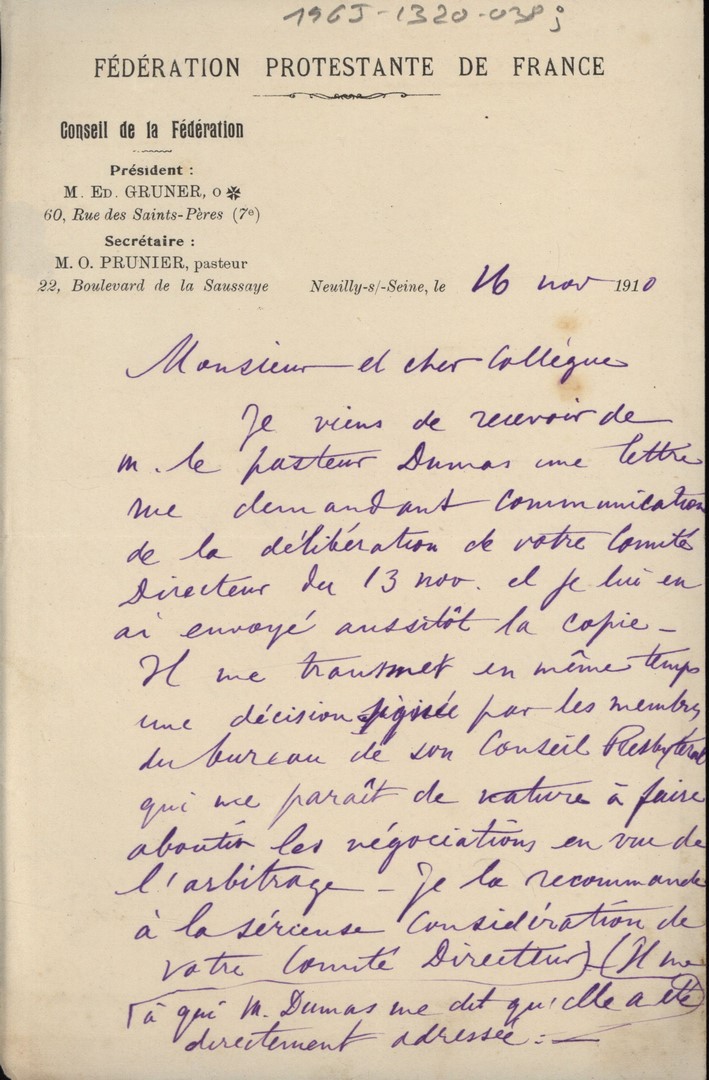 1965-1320-038j
FÉDÉRATION PROTESTANTE DE FRANCE
Conseil de la Fédération
Président :
M. ED. GRUNER, O ✠
60, Rue des Saints-Pères (7e)
Secrétaire :
M. O. PRUNIER, pasteur
22, Boulevard de la Saussaye
Neuilly-s/-Seine, le 16 nov 1910
Monsieur et cher Collègue
Je viens de recevoir de
M. le pasteur Dumas une lettre
me demandant communication
de la délibération de votre Comité
Directeur du 13 nov. et je lui en
ai envoyé aussitôt la copie –
Il me transmet en même temps
une décision signée par les membres
du bureau de son Conseil Presbytéral
qui me paraît de nature à faire
aboutir les négociations en vue de
l'arbitrage – Je la recommande
à la sérieuse considération de
votre Comité Directeur) (Il me
à qui M. Dumas me dit qu'elle a été
directement adressée. –